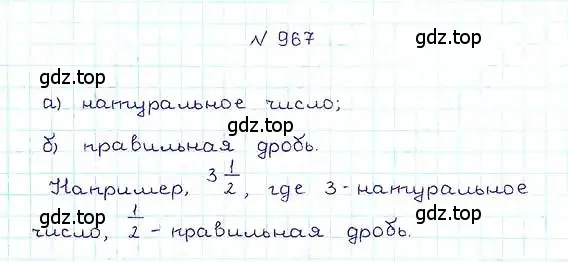 № 967
gdz.top
gdz.top
а) натуральное число;
gdz.top
б) правильная дробь.
Например, 3 1/2, где 3 - натуральное
gdz.top
gdz.top
число, 1/2 - правильная дробь.